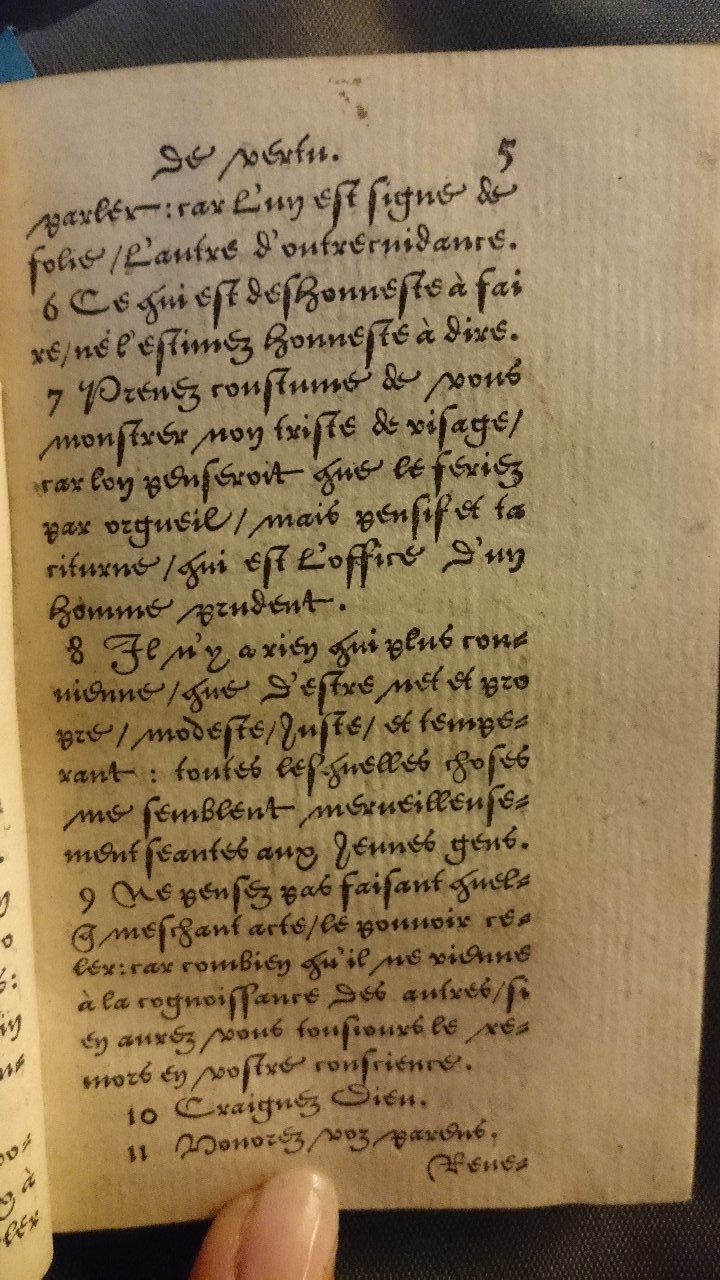 de vertu. 5
parler : car l'un est signe de
folie / l'autre d'outrecuidance.
6 Ce qui est deshonneste à fai
re / ne l'estimez honneste à dire.
7 Prenez coustume de vous
monstrer non triste de visage /
car lon penseroit que le feriez
par orgueil / mais pensif et ta
citurne / qui est l'office d'un
homme prudent.
8 Il n'y a rien qui plus con-
vienne / que d'estre net et pro
pre / modeste / Juste / et tempe-
rant : toutes lesquelles choses
me semblent merveilleuse-
ment seantes aux Jeunes gens.
9 Ne pensez pas faisant quel-
q meschant acte / le pouvoir ce-
ler : car combien qu'il ne vienne
à la cognoissance des autres / si
en aurez vous tousiours le re-
mors en vostre conscience.
10 Craignez Dieu.
11 Honorez voz parens.
Reve-
à
ler